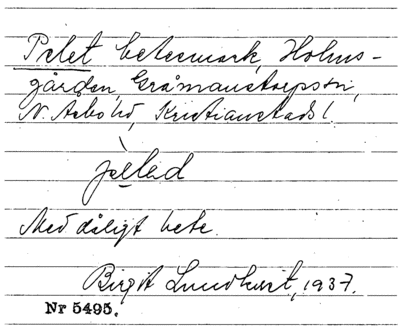 Pelet betesmark, Holms-
gården Gråmanstorpssn,
N. Åsbo hd, Kristianstads l.
pelad
Med dåligt bete.
Birgit Lundkvist, 1937.
Nr 5495.